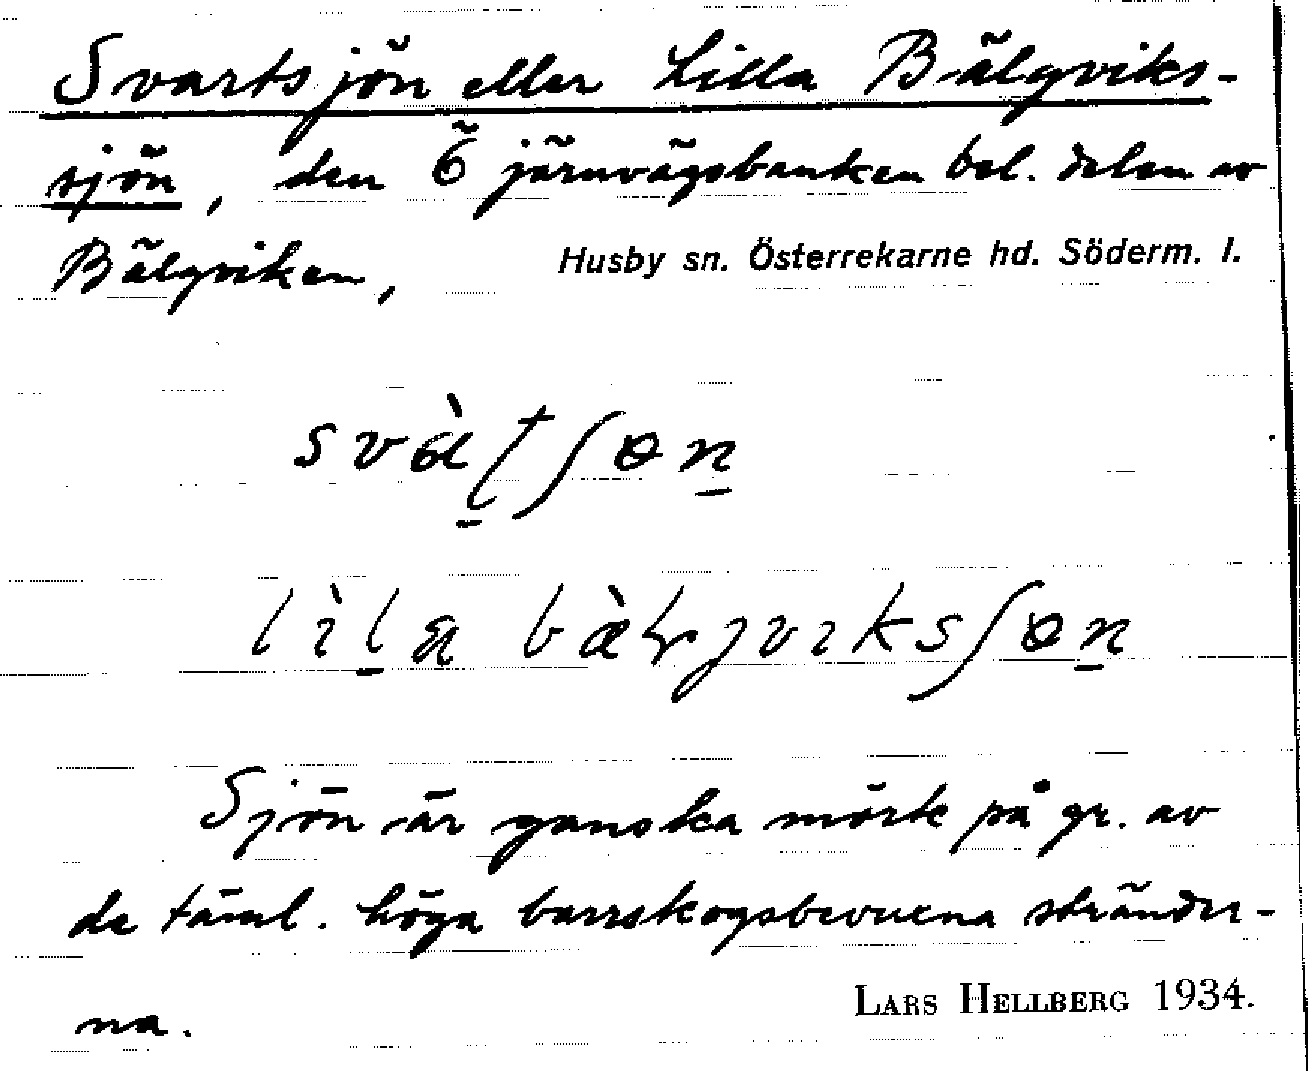 Svartsjön eller Lilla Bälgviks-
sjön, den Ö järnvägsbanken bel. delen av
Bälgviken, Husby sn. Österrekarne hd. Söderm. l.
Sjön är ganska mörk på gr. av
de täml. höga barrskogsbevuxna stränder-
na.
LARS HELLBERG 1934.